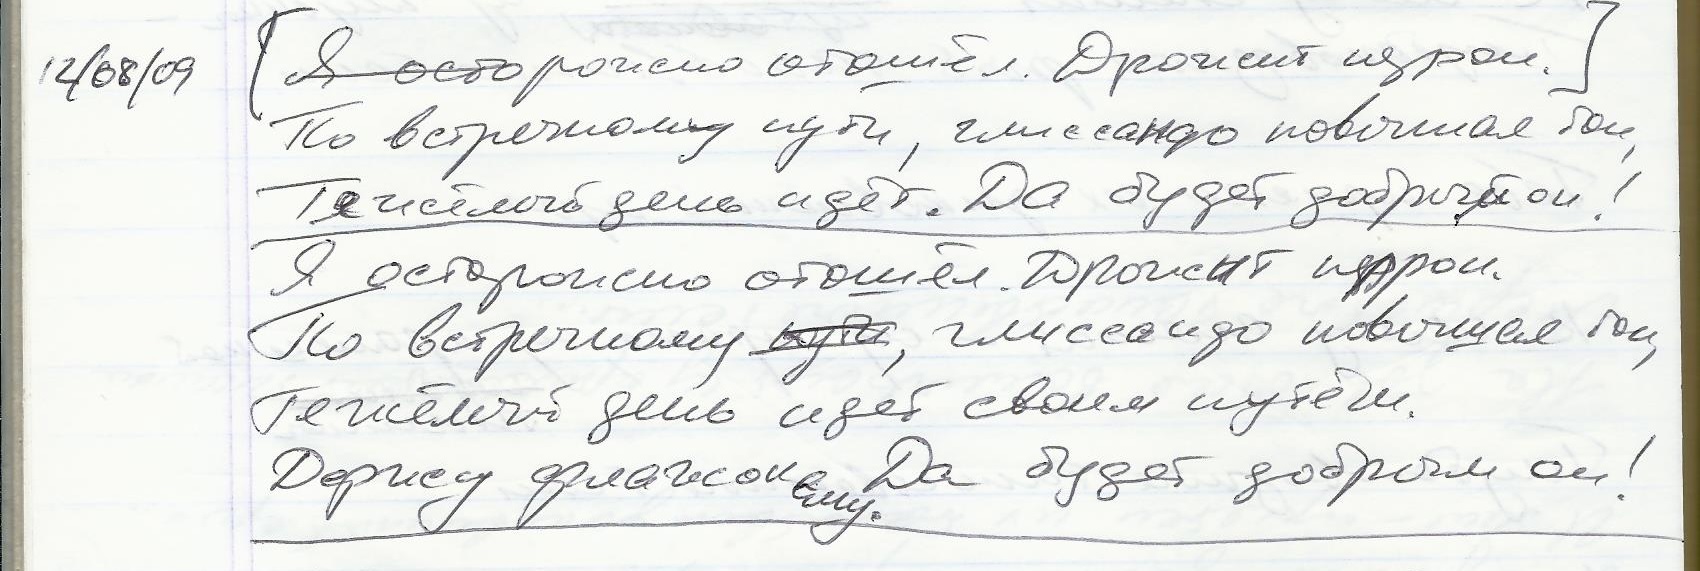 12/08/09
[Я осторожно отошёл. Дрожит перрон.]
По встречному пути, глиссандо повышая тон,
Тяжёлый день идёт. Да будет добрым он!
Я осторожно отошёл. Дрожит перрон.
По встречному пути, глиссандо повышая тон,
Тяжёлый день идёт своим путём.
Держу флажок ему. Да будет добрым он!